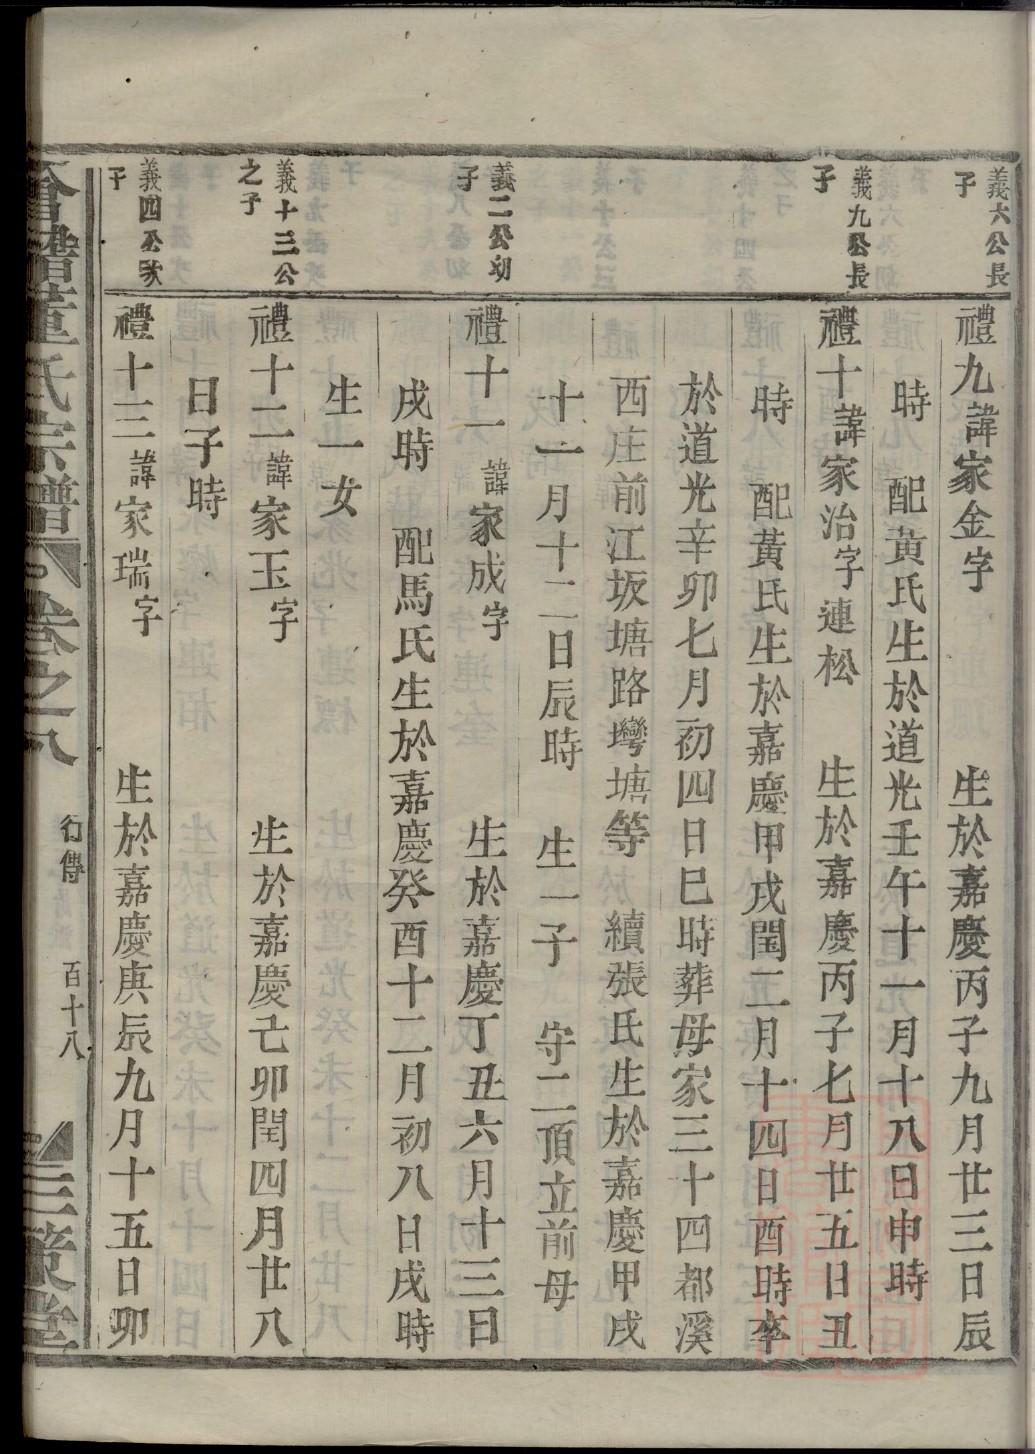 義六公長
子
禮九諱家金字　生於嘉慶丙子九月廿三日辰
時　配黃氏生於道光壬午十一月十八日申時
義九公長
子
禮十諱家治字連松　生於嘉慶丙子七月廿五日丑
時　配黃氏生於嘉慶甲戌閏二月十四日酉時卒
於道光辛卯七月初四日巳時葬母家三十四都溪
西庄前江坂塘路塆塘等　續張氏生於嘉慶甲戌
十一月十二日辰時　生一子　守二頂立前母
義二公幼
子
禮十一諱家成字　生於嘉慶丁丑六月十三日
戌時　配馬氏生於嘉慶癸酉十二月初八日戌時
生一女
義十三公
之子
禮十二諱家玉字　生於嘉慶己卯閏四月廿八
日子時
義四公次
子
禮十三諱家瑞字　生於嘉慶庚辰九月十五日卯
董氏宗譜　卷之八　行傳　百十八　三策堂